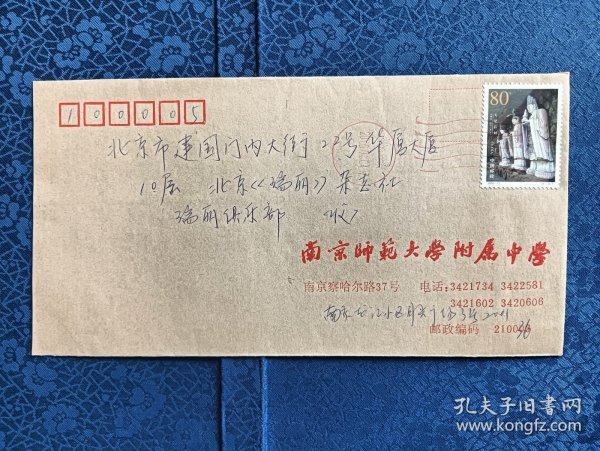 100005
80
北京市建国门内大街22号华厦大厦
10层 北京《瑞丽》杂志社
瑞丽俱乐部 (收)
南京師範大學附属中學
南京察哈尔路37号 电话:3421734 3422581
3421602 3420606
南京龙江小区
邮政编码 2100
36
孔夫子旧书网
www.kongfz.com